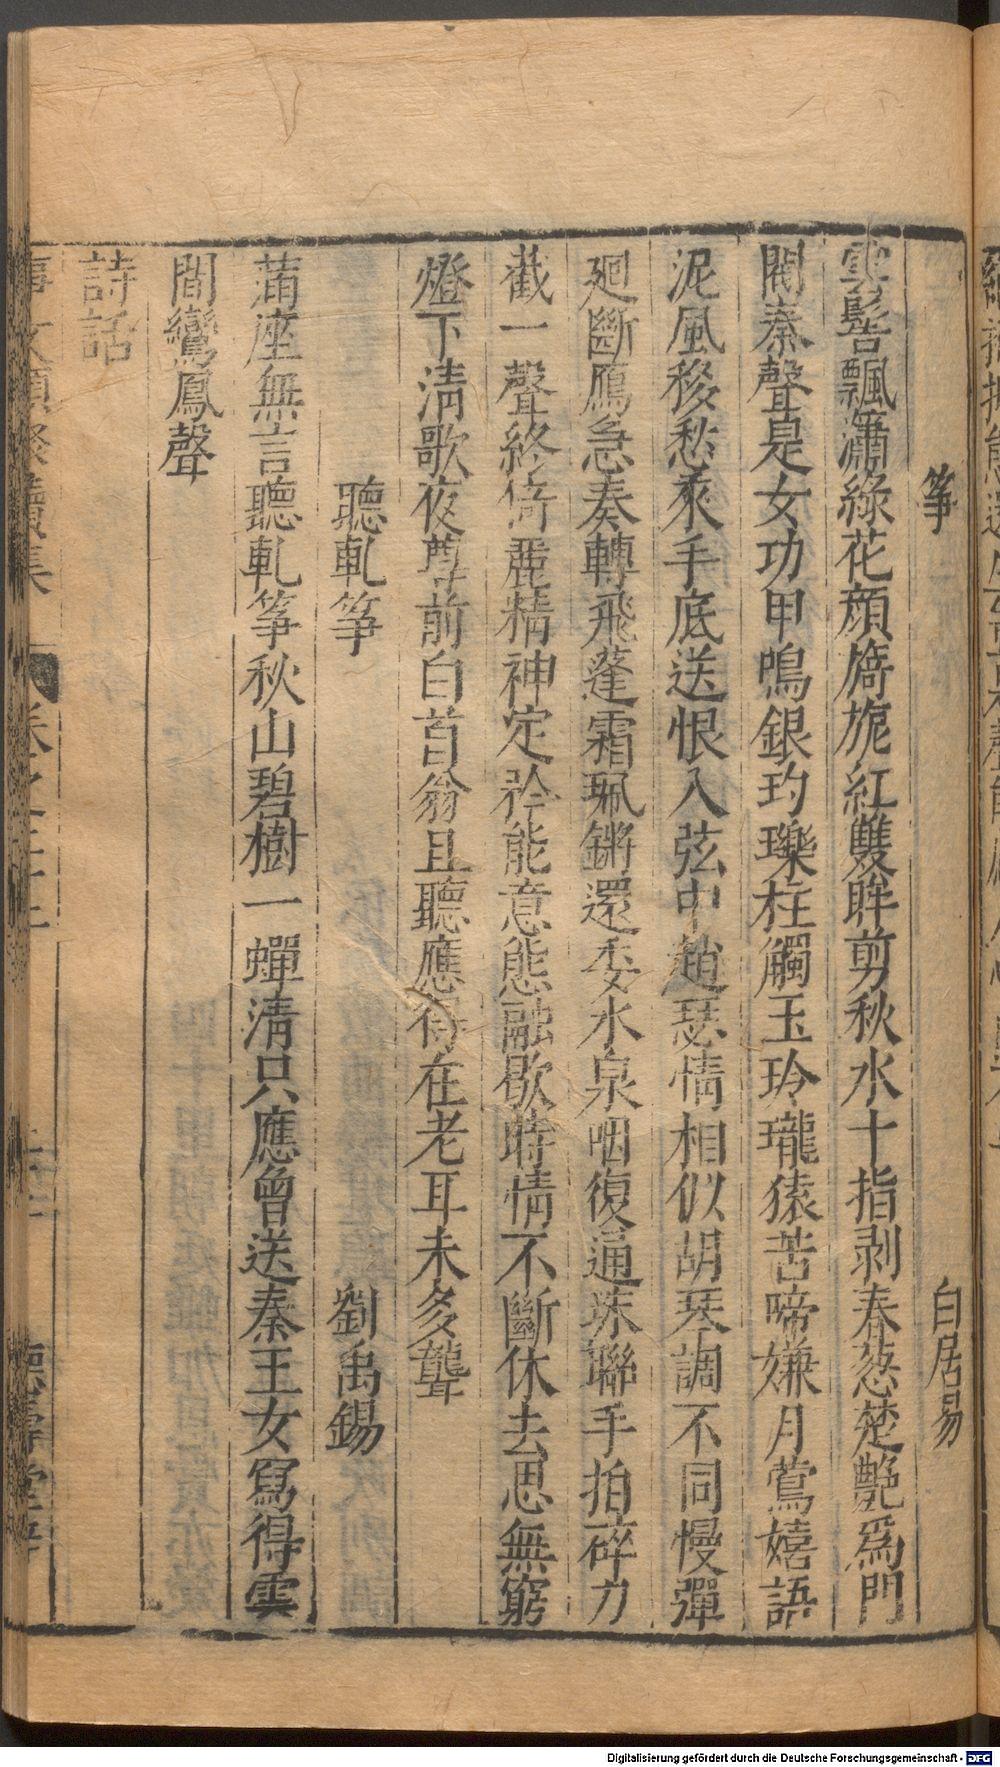 箏　白居易
雲髻飄瀟綠花顔旖旎紅雙眸剪秋水十指剥春葱楚艷爲門
閥秦聲是女功甲鳴銀玓瓅柱觸玉玲瓏猿苦啼嫌月鶯嬉語
泥風移愁來手底送恨入弦中趙瑟情相似胡琴調不同慢彈
廻斷鴈急奏轉飛蓬霜珮鏘還委水泉咽復通珠聯手拍碎刀
截一聲終倚麗精神定矜能意態融歇時情不斷休去思無窮
燈下淸歌夜尊前白首翁且聽應得在老耳未多聾
聽軋箏　劉禹錫
蒲座無言聽軋箏秋山碧樹一蟬淸只應曾送秦王女寫得雲
間鸞鳳聲
詩話
事文類聚續集　卷之二十三　德壽堂
Digitalisierung gefördert durch die Deutsche Forschungsgemeinschaft - DFG